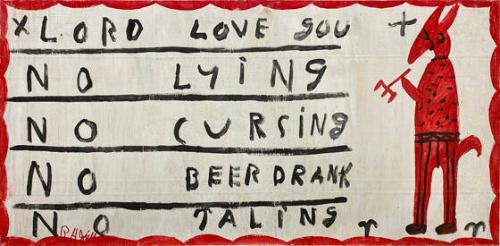 XLORD LOVE YOU
NO LYING
NO CURSING
NO BEERDRANK
NO TALING